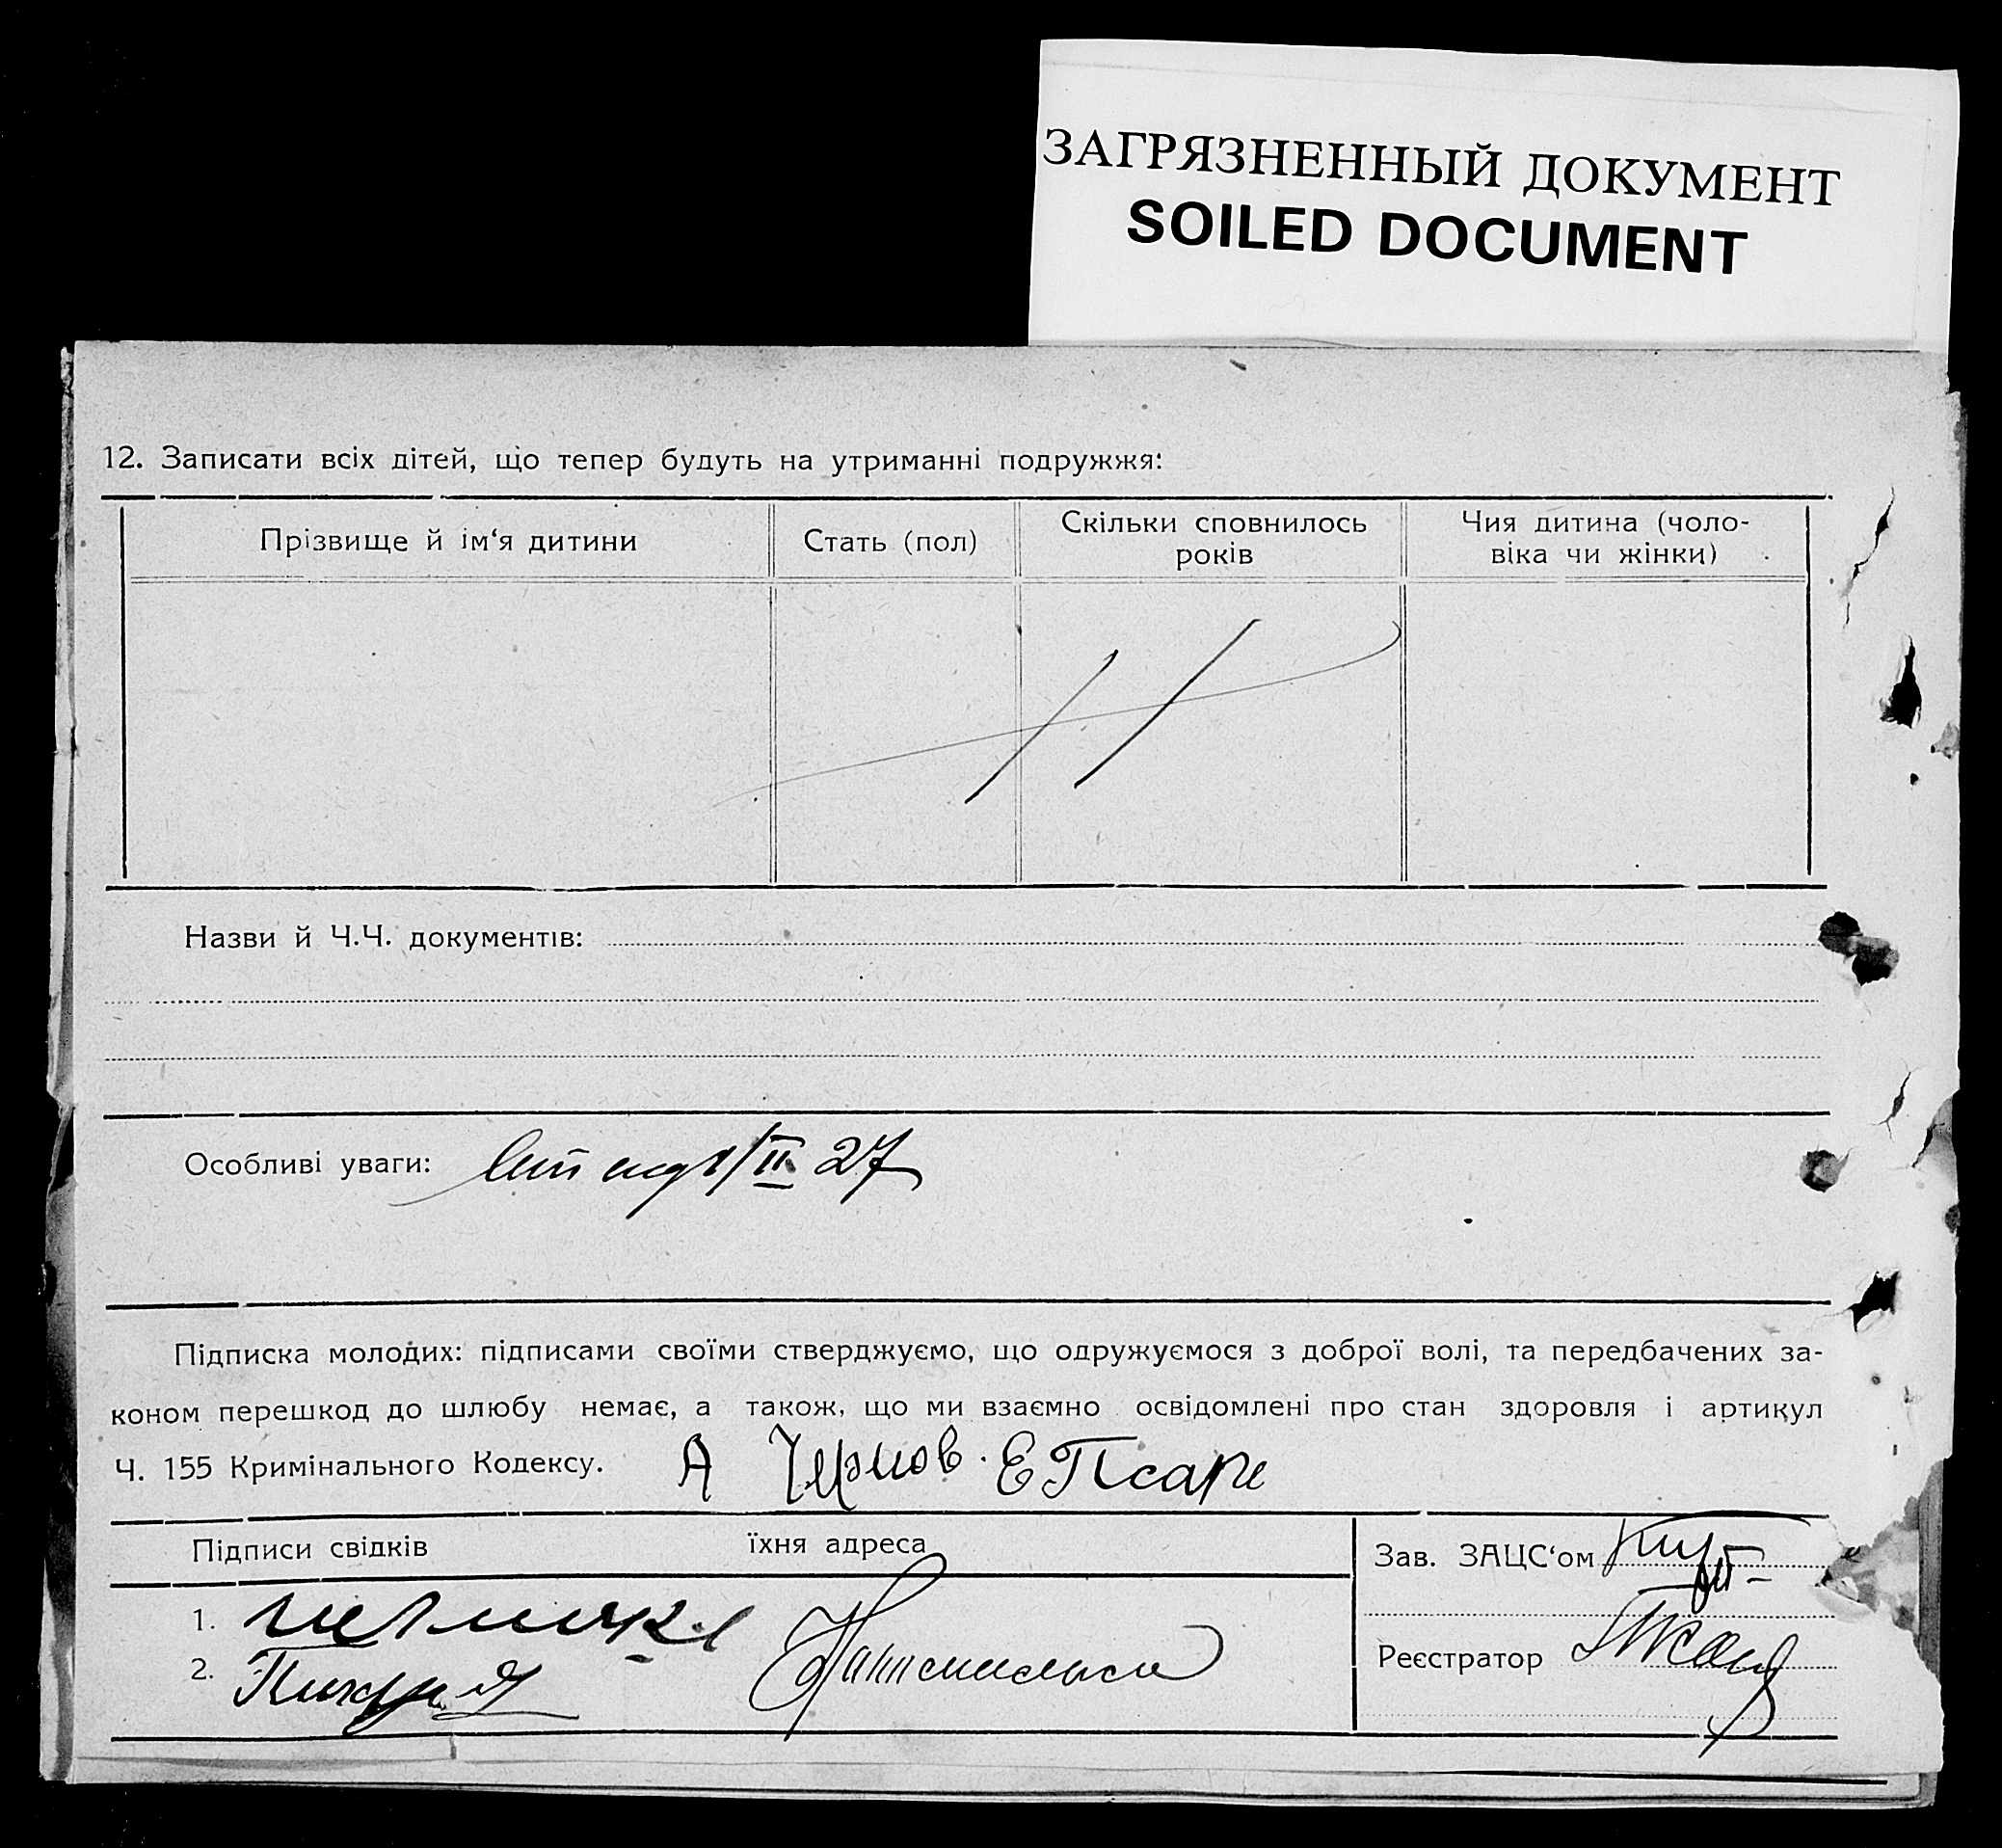 ЗАГРЯЗНЕННЫЙ ДОКУМЕНТ
SOILED DOCUMENT
12. Записати всіх дітей, що тепер будуть на утриманні подружжя:
Прізвище й ім‘я дитини
Стать (пол)
Скільки сповнилось
років
Чия дитина (чоло-
віка чи жінки)
Назви й Ч.Ч. документів:
Особливі уваги: /II 27
Підписка молодих: підписами своїми стверджуємо, що одружуємося з доброї волі, та передбачених за-
коном перешкод до шлюбу немає, а також, що ми взаємно освідомлені про стан здоровля і артикул
Ч. 155 Кримінального Кодексу. А Чернов. Е Псаре
Підписи свідків
їхня адреса
1.
2.
Зав. ЗАЦС‘ом
Реєстратор